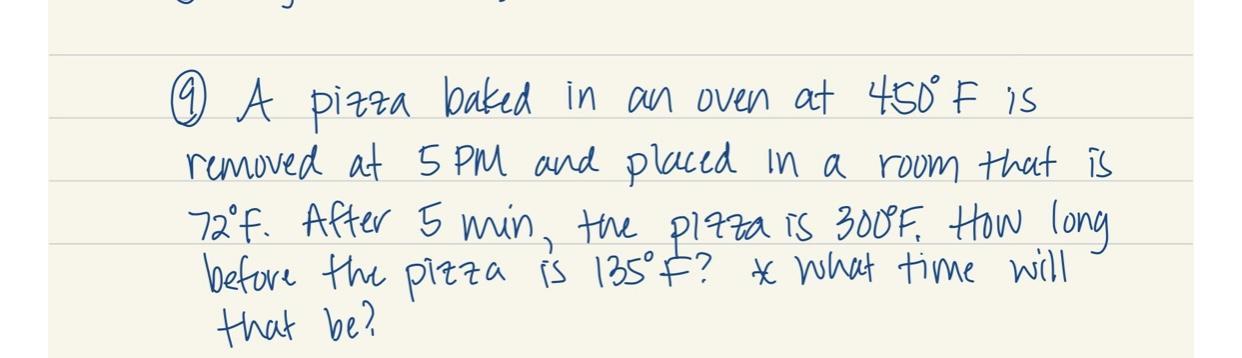 ⑨ A pizza baked in an oven at 450°F is
removed at 5 PM and placed in a room that is
72°F. After 5 min, the pizza is 300°F. How long
before the pizza is 135°F? * What time will
that be?